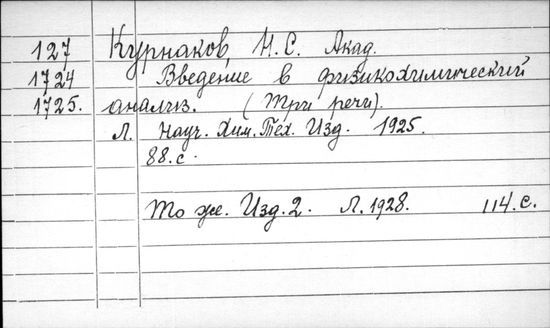 127 Курнаков, Н. С. Акад.
1724 Введение в физикохимический
1725. анализ. (Три речи).
Л. Науч. Хим. Тех. Изд. 1925.
88. с.
То же. Изд. 2. Л. 1928. 114. с.